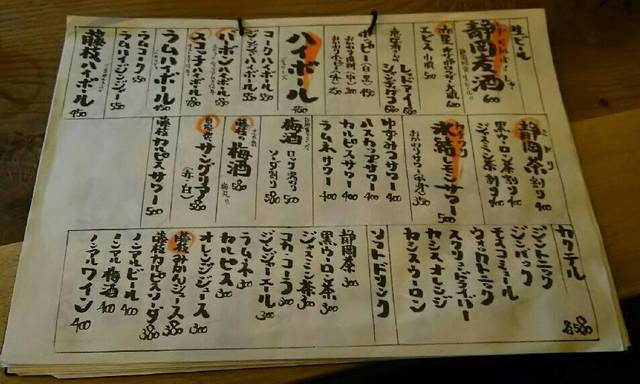 生ビール
静岡麦酒 600
エビス小瓶 500
レッドアイ 600
ホッピー(白・黒) 450
ハイボール 450
ジンジャーハイボール 550
コークハイボール 550
バーボンハイボール 550
スコッチハイボール 580
ラムハイボール 450
ラムジンジャー 550
ラムコーク 550
藤枝ハイボール 450
静岡茶割り 400
黒ウーロン茶割り 400
ジャスミン茶割り 400
氷結レモンサワー 500
ゆずみつサワー 400
ハスカップサワー 400
カルピスサワー 400
ラムネサワー 400
梅酒
ロック
ソーダ割り
梅酒 580
サングリア(赤・白) 580
藤枝カルピスサワー 500
カクテル
ジントニック
ジンバック
モスコミュール
ウォッカトニック
スクリュードライバー
カシスオレンジ
カシスウーロン
各580
ソフトドリンク
静岡茶 300
黒ウーロン茶 300
ジャスミン茶 300
コカ・コーラ 300
ジンジャーエール 300
ラムネ 300
カルピス 300
オレンジジュース 300
藤枝みかんジュース 380
藤枝カルピスソーダ 380
ノンアルビール 400
ノンアル梅酒 400
ノンアルワイン 400